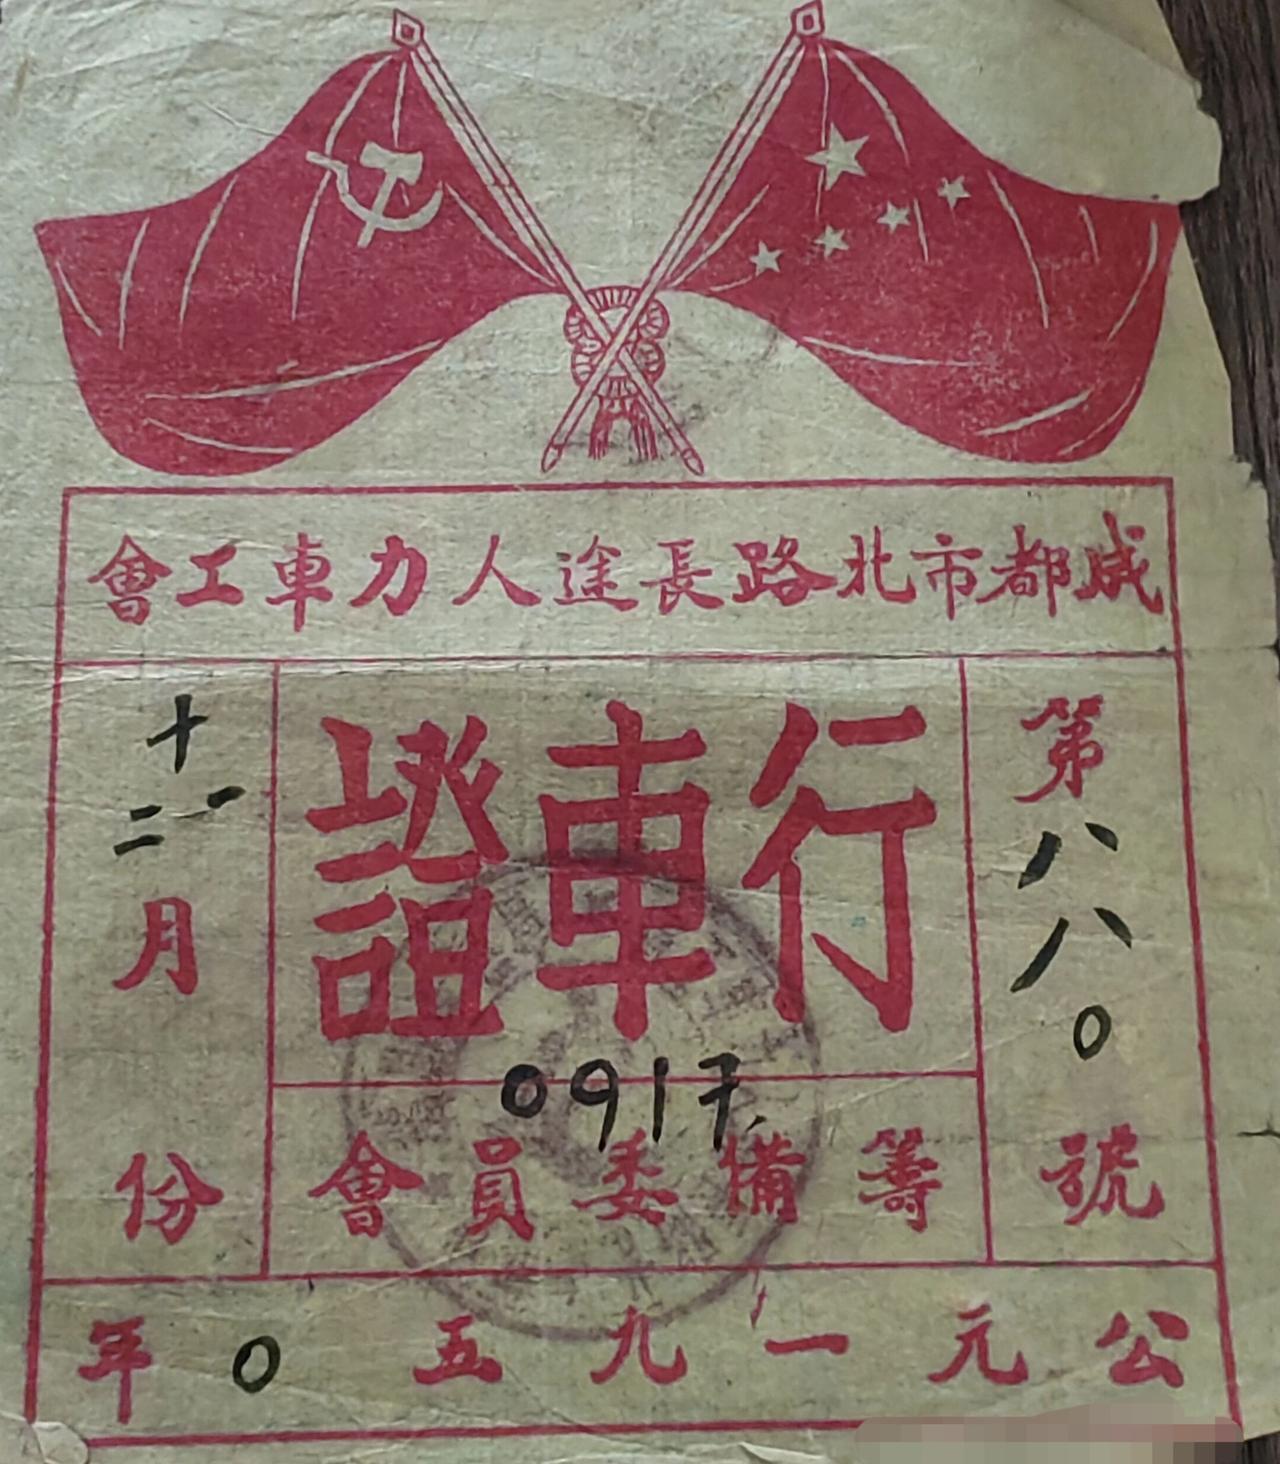 成都市北路長途人力車工會
第八八0號
行車證
0917
籌備委員會
十一二月份
公元一九五0年